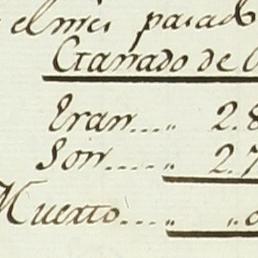 el mes pasado
Ganado de
Eran...." 2.8
Son....." 2.7
Muerto...." "